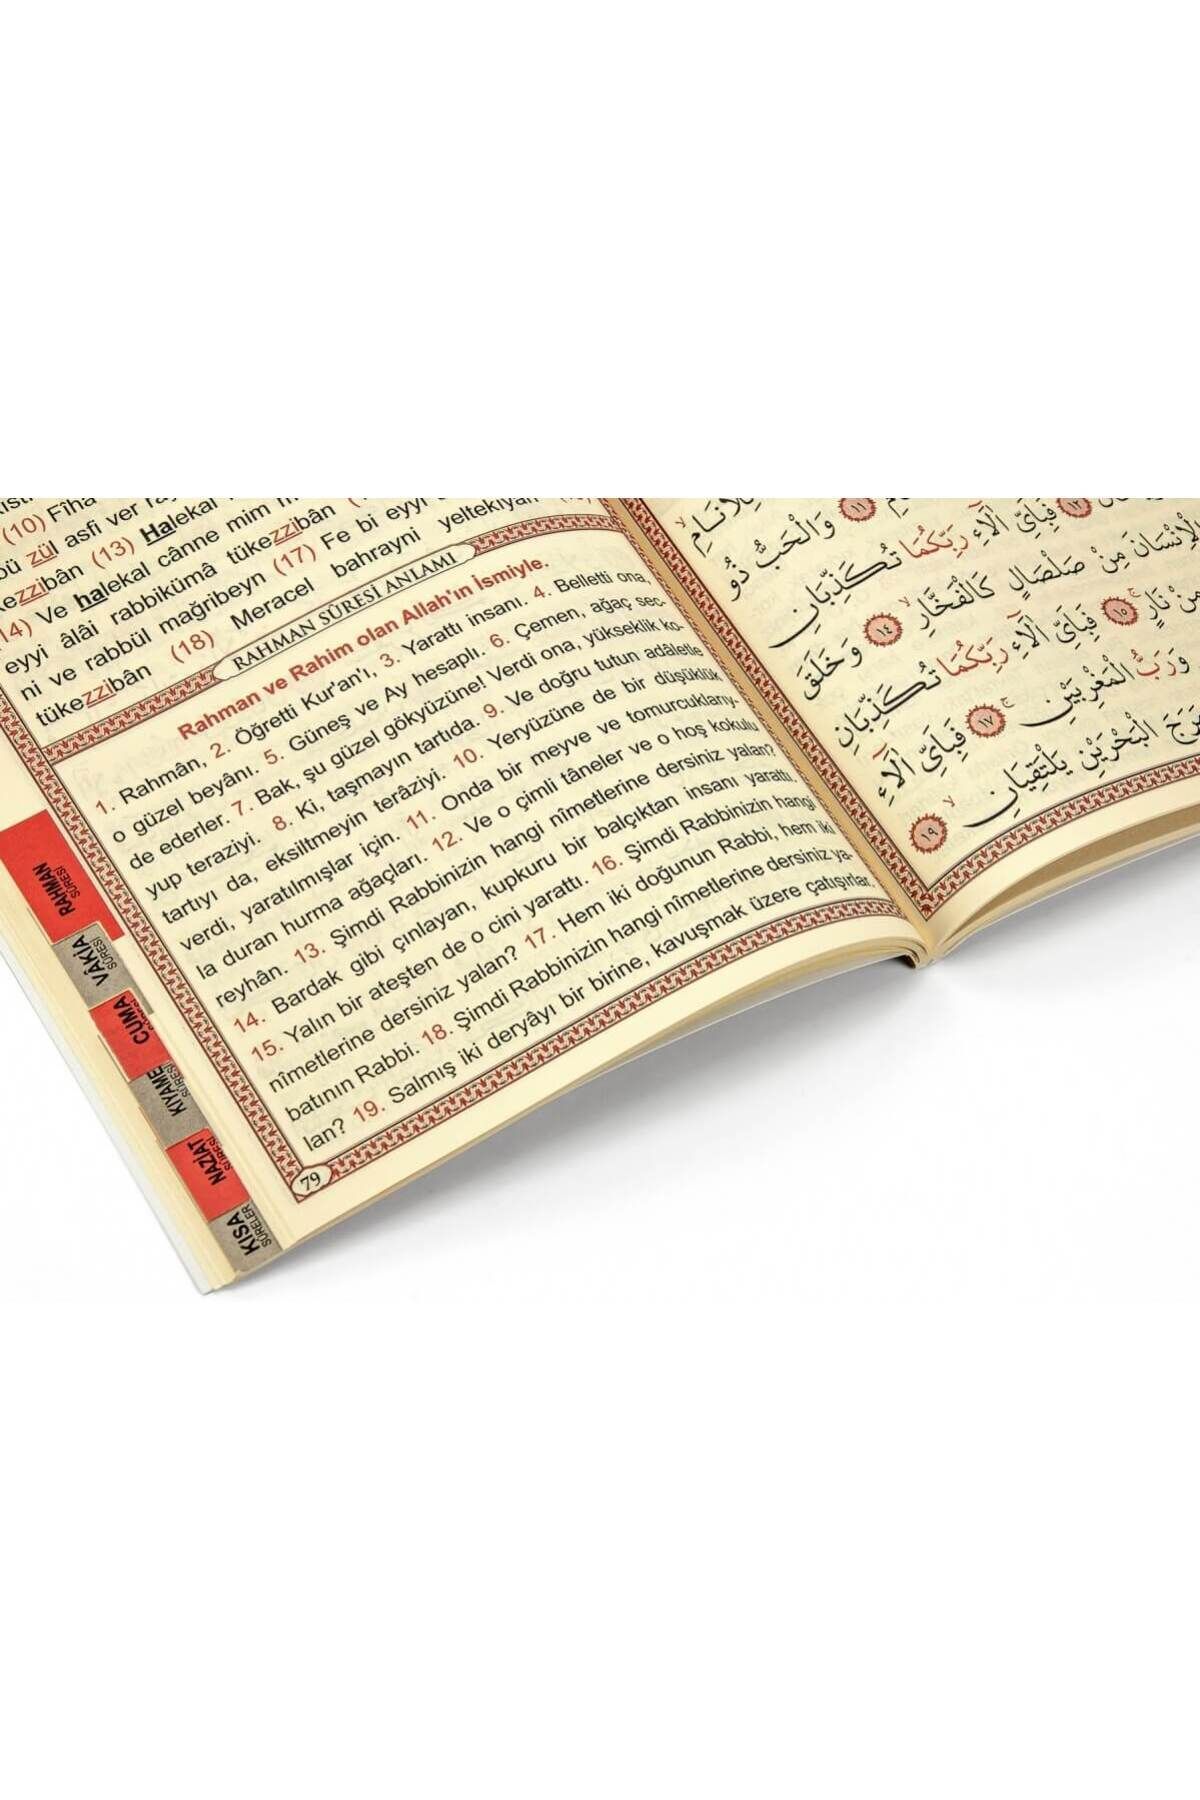 (10) Fîha
bü zül asfi ver
kezzibân (13) Halekal
(14) Ve halekal cânne mim
eyyi âlâi rabbikümâ tükezzibân
ni ve rabbül mağribeyn (17) Fe bi eyyi
tükezzibân (18) Meracel bahrayni yeltekıyân
RAHMAN SÛRESİ ANLAMI
Rahman ve Rahim olan Allah'ın İsmiyle.
1. Rahmân, 2. Öğretti Kur'an'ı, 3. Yarattı insanı. 4. Belletti ona,
o güzel beyânı. 5. Güneş ve Ay hesaplı. 6. Çemen, ağaç sec-
de ederler. 7. Bak, şu güzel gökyüzüne! Verdi ona, yükseklik ko-
yup teraziyi. 8. Ki, taşmayın tartıda. 9. Ve doğru tutun adâletle
tartıyı da, eksiltmeyin terâziyi. 10. Yeryüzüne de bir düşüklük
verdi, yaratılmışlar için. 11. Onda bir meyve ve tomurcuklarıy-
la duran hurma ağaçları. 12. Ve o çimli tâneler ve o hoş kokulu
reyhân. 13. Şimdi Rabbinizin hangi nîmetlerine dersiniz yalan?
14. Bardak gibi çınlayan, kupkuru bir balçıktan insanı yarattı,
15. Yalın bir ateşten de o cini yarattı. 16. Şimdi Rabbinizin hangi
nîmetlerine dersiniz yalan? 17. Hem iki doğunun Rabbi, hem iki
batının Rabbi. 18. Şimdi Rabbinizin hangi nîmetlerine dersiniz ya-
lan? 19. Salmış iki deryâyı bir birine, kavuşmak üzere çatışırlar.
79
RAHMAN SÛRESİ
VÂKIA SÛRESİ
CUMA
KIYAME SÛRESİ
NAZİAT SÛRESİ
KISA SÛRELER
لِلْاَنَامِ
١١ وَالْحَبُّ ذُو
١٢ فَبِاَيِّ اٰلَٓاءِ رَبِّكُمَا تُكَذِّبَانِ
الْاِنْسَانَ مِنْ صَلْصَالٍ كَالْفَخَّارِ ١٤ وَخَلَقَ
مِنْ نَارٍ ١٥ فَبِاَيِّ اٰلَٓاءِ رَبِّكُمَا تُكَذِّبَانِ
وَرَبُّ الْمَغْرِبَيْنِ ١٧ فَبِاَيِّ اٰلَٓاءِ
الْبَحْرَيْنِ يَلْتَقِيَانِ ١٩